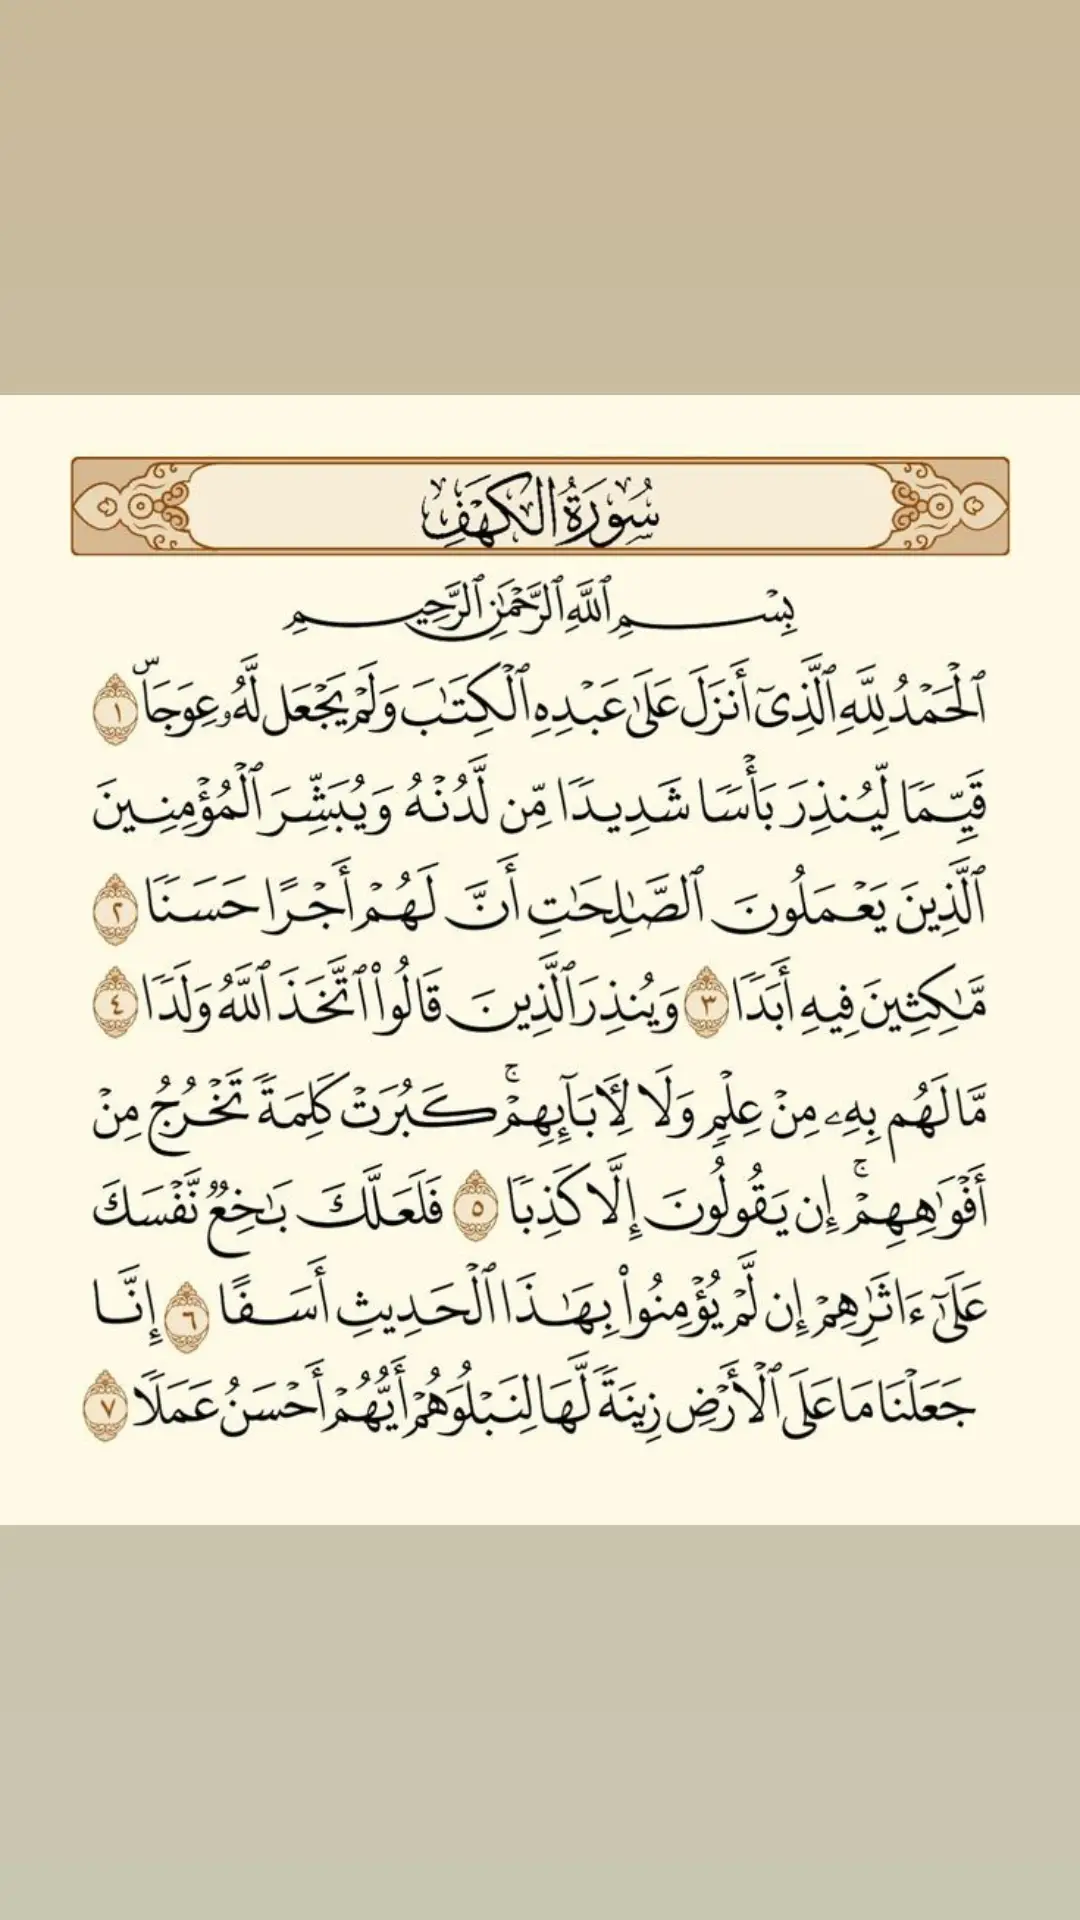 سُورَةُ الكَهۡفِ
بِسۡمِ ٱللَّهِ ٱلرَّحۡمَٰنِ ٱلرَّحِيمِ
ٱلۡحَمۡدُ لِلَّهِ ٱلَّذِيٓ أَنزَلَ عَلَىٰ عَبۡدِهِ ٱلۡكِتَٰبَ وَلَمۡ يَجۡعَل لَّهُۥ عِوَجَاۜ ١
قَيِّمٗا لِّيُنذِرَ بَأۡسٗا شَدِيدٗا مِّن لَّدُنۡهُ وَيُبَشِّرَ ٱلۡمُؤۡمِنِينَ
ٱلَّذِينَ يَعۡمَلُونَ ٱلصَّٰلِحَٰتِ أَنَّ لَهُمۡ أَجۡرًا حَسَنٗا ٢
مَّٰكِثِينَ فِيهِ أَبَدٗا ٣ وَيُنذِرَ ٱلَّذِينَ قَالُواْ ٱتَّخَذَ ٱللَّهُ وَلَدٗا ٤
مَّا لَهُم بِهِۦ مِنۡ عِلۡمٖ وَلَا لِأٓبَآئِهِمۡۚ كَبُرَتۡ كَلِمَةٗ تَخۡرُجُ مِنۡ
أَفۡوَٰهِهِمۡۚ إِن يَقُولُونَ إِلَّا كَذِبٗا ٥ فَلَعَلَّكَ بَٰخِعٞ نَّفۡسَكَ
عَلَىٰٓ ءَاثَٰرِهِمۡ إِن لَّمۡ يُؤۡمِنُواْ بِهَٰذَا ٱلۡحَدِيثِ أَسَفًا ٦ إِنَّا
جَعَلۡنَا مَا عَلَى ٱلۡأَرۡضِ زِينَةٗ لَّهَا لِنَبۡلُوَهُمۡ أَيُّهُمۡ أَحۡسَنُ عَمَلٗا ٧